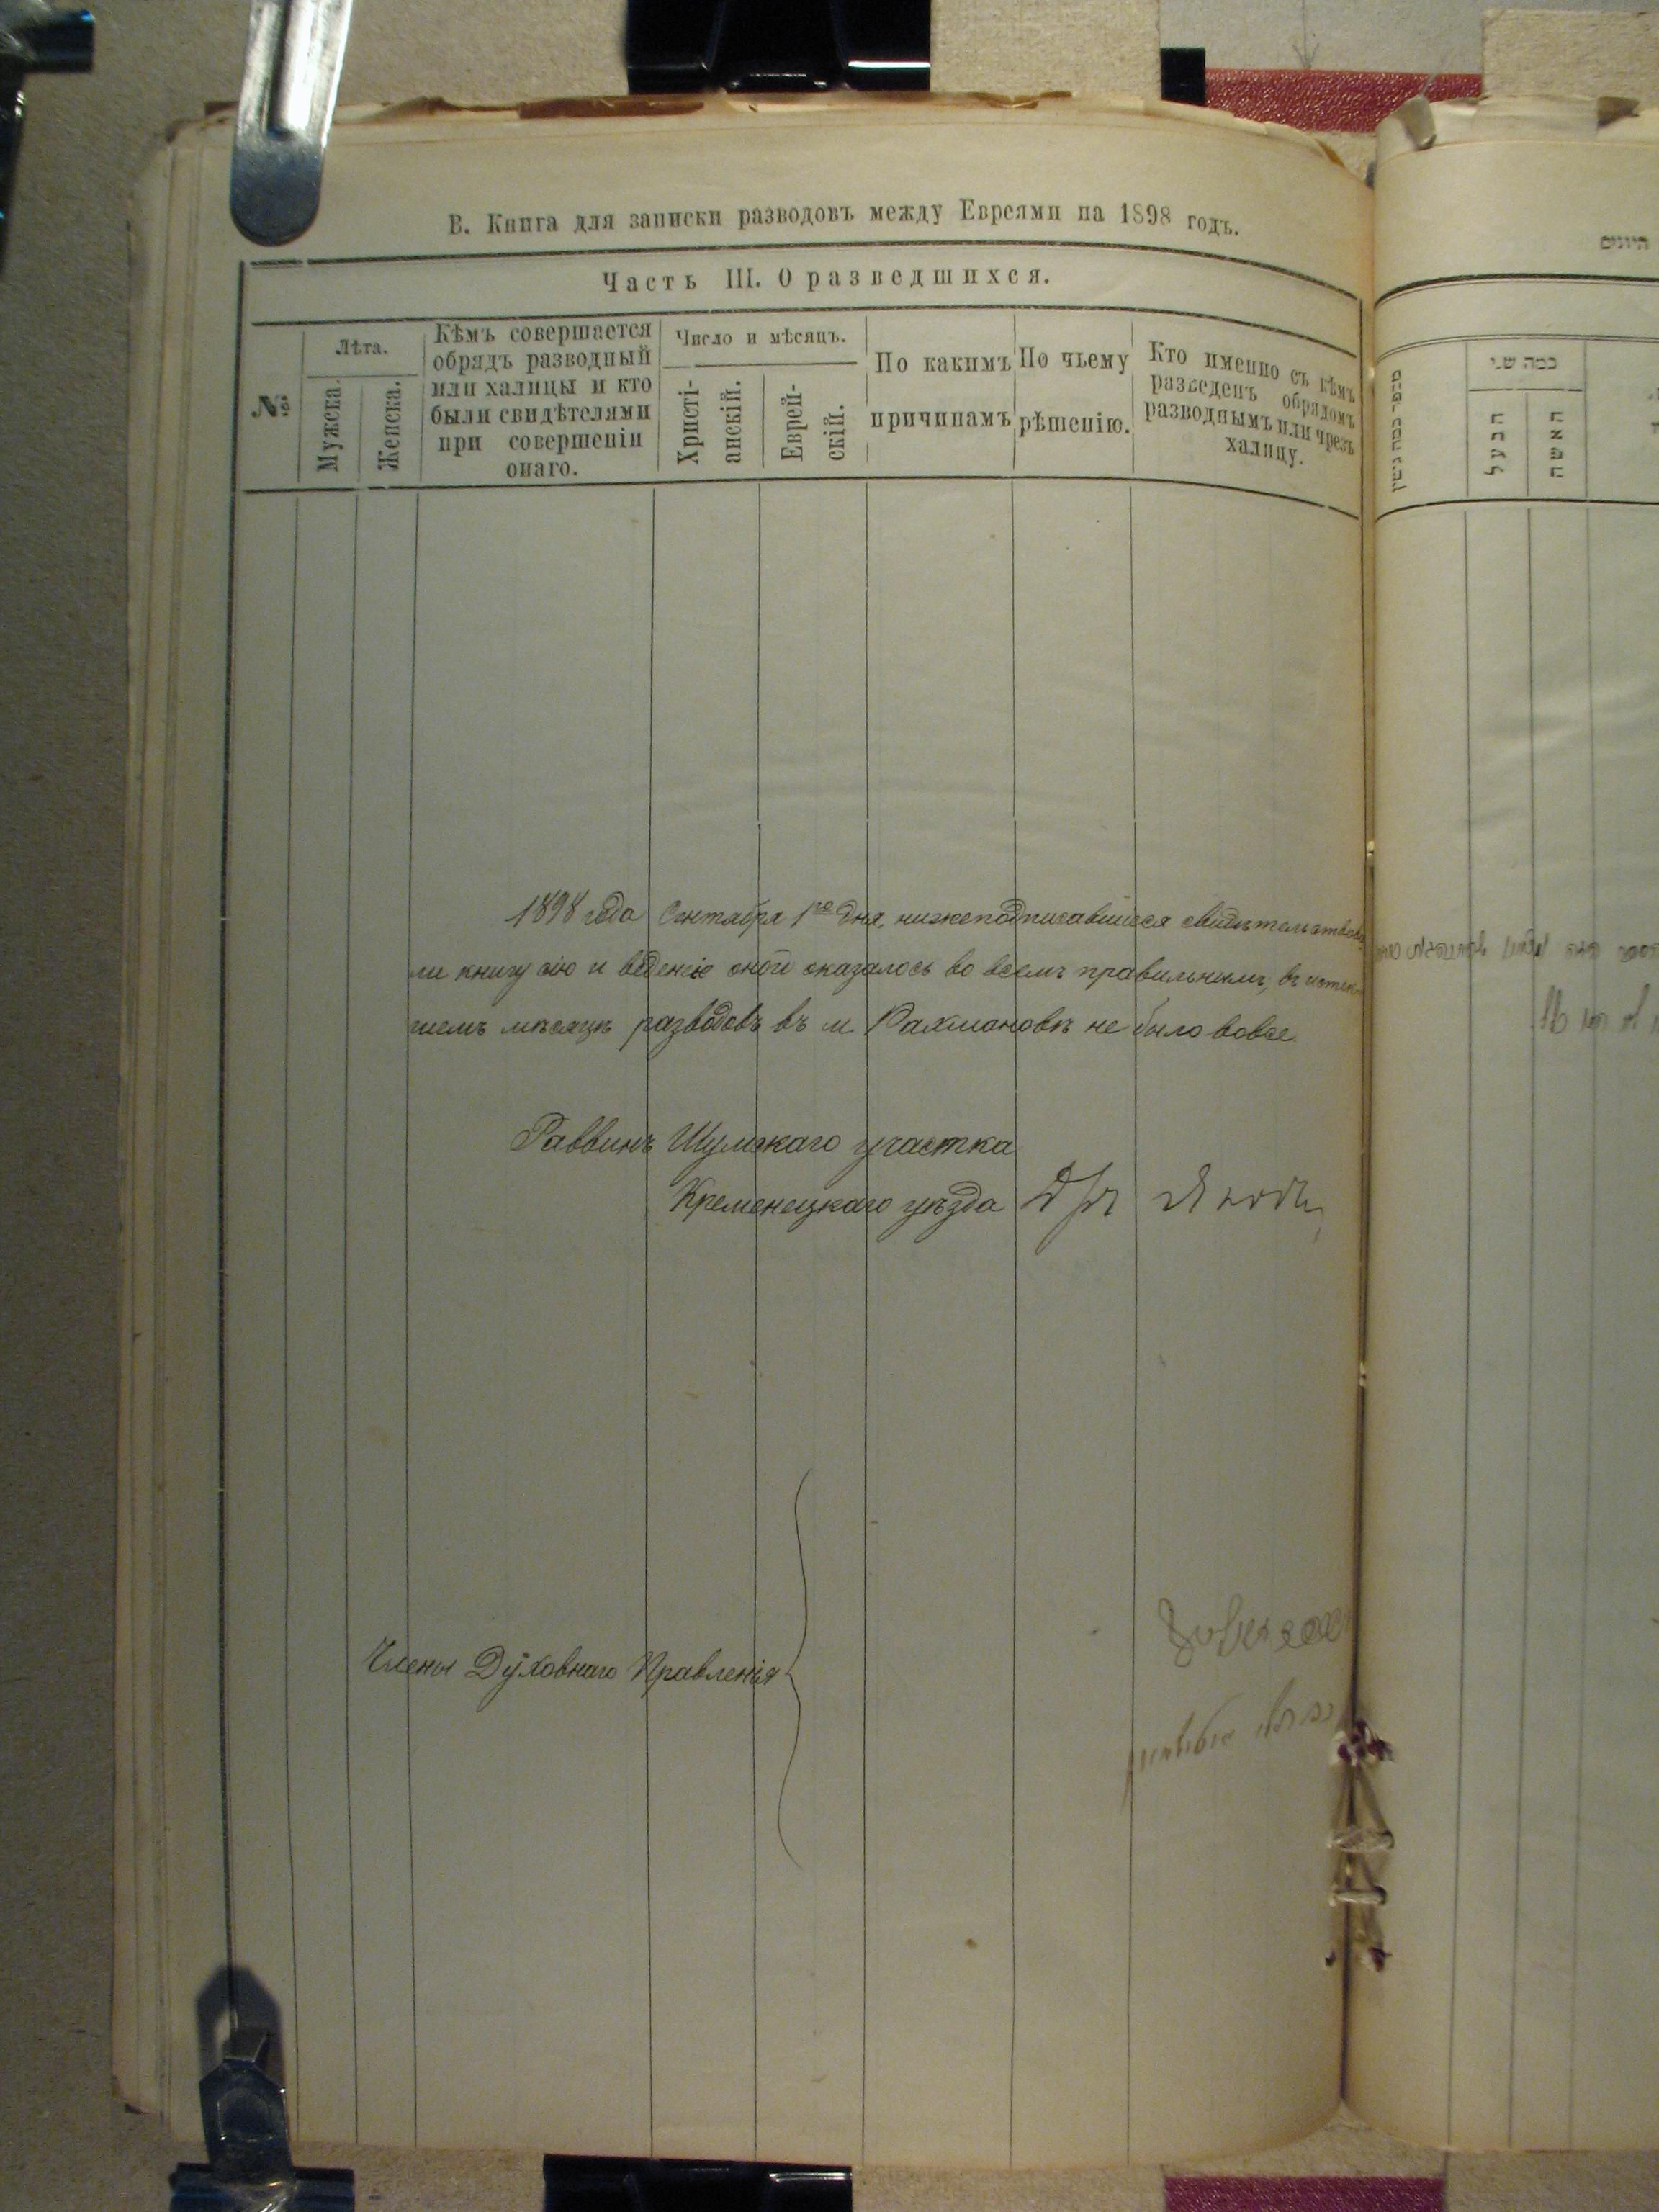 В. Книга для записки разводовъ между Евреями на 1898 годъ.
Часть III. О разведшихся.
№
Лѣта.
Мужска.
Женска.
Кѣмъ совершается
обрядъ разводный
или халицы и кто
были свидѣтелями
при совершеніи
онаго.
Число и мѣсяцъ.
Христі-
анскій.
Еврей-
скій.
По какимъ
причинамъ
По чьему
рѣшенію.
Кто именно съ кѣмъ
разведенъ обрядомъ
разводнымъ или чрезъ
халицу.
1898 года Сентября 1го дня, нижеподписавшіеся свидѣтельствова
ли книгу сію и веденіе оной оказалось во всемъ правильнымъ, въ истек
шемъ мѣсяцѣ разводовъ въ м. Рахмановѣ не было вовсе.
Раввинъ Шумскаго участка
Кременецкаго уѣзда
Члены Духовнаго Правленія
כמה שני
הבעל
האשה